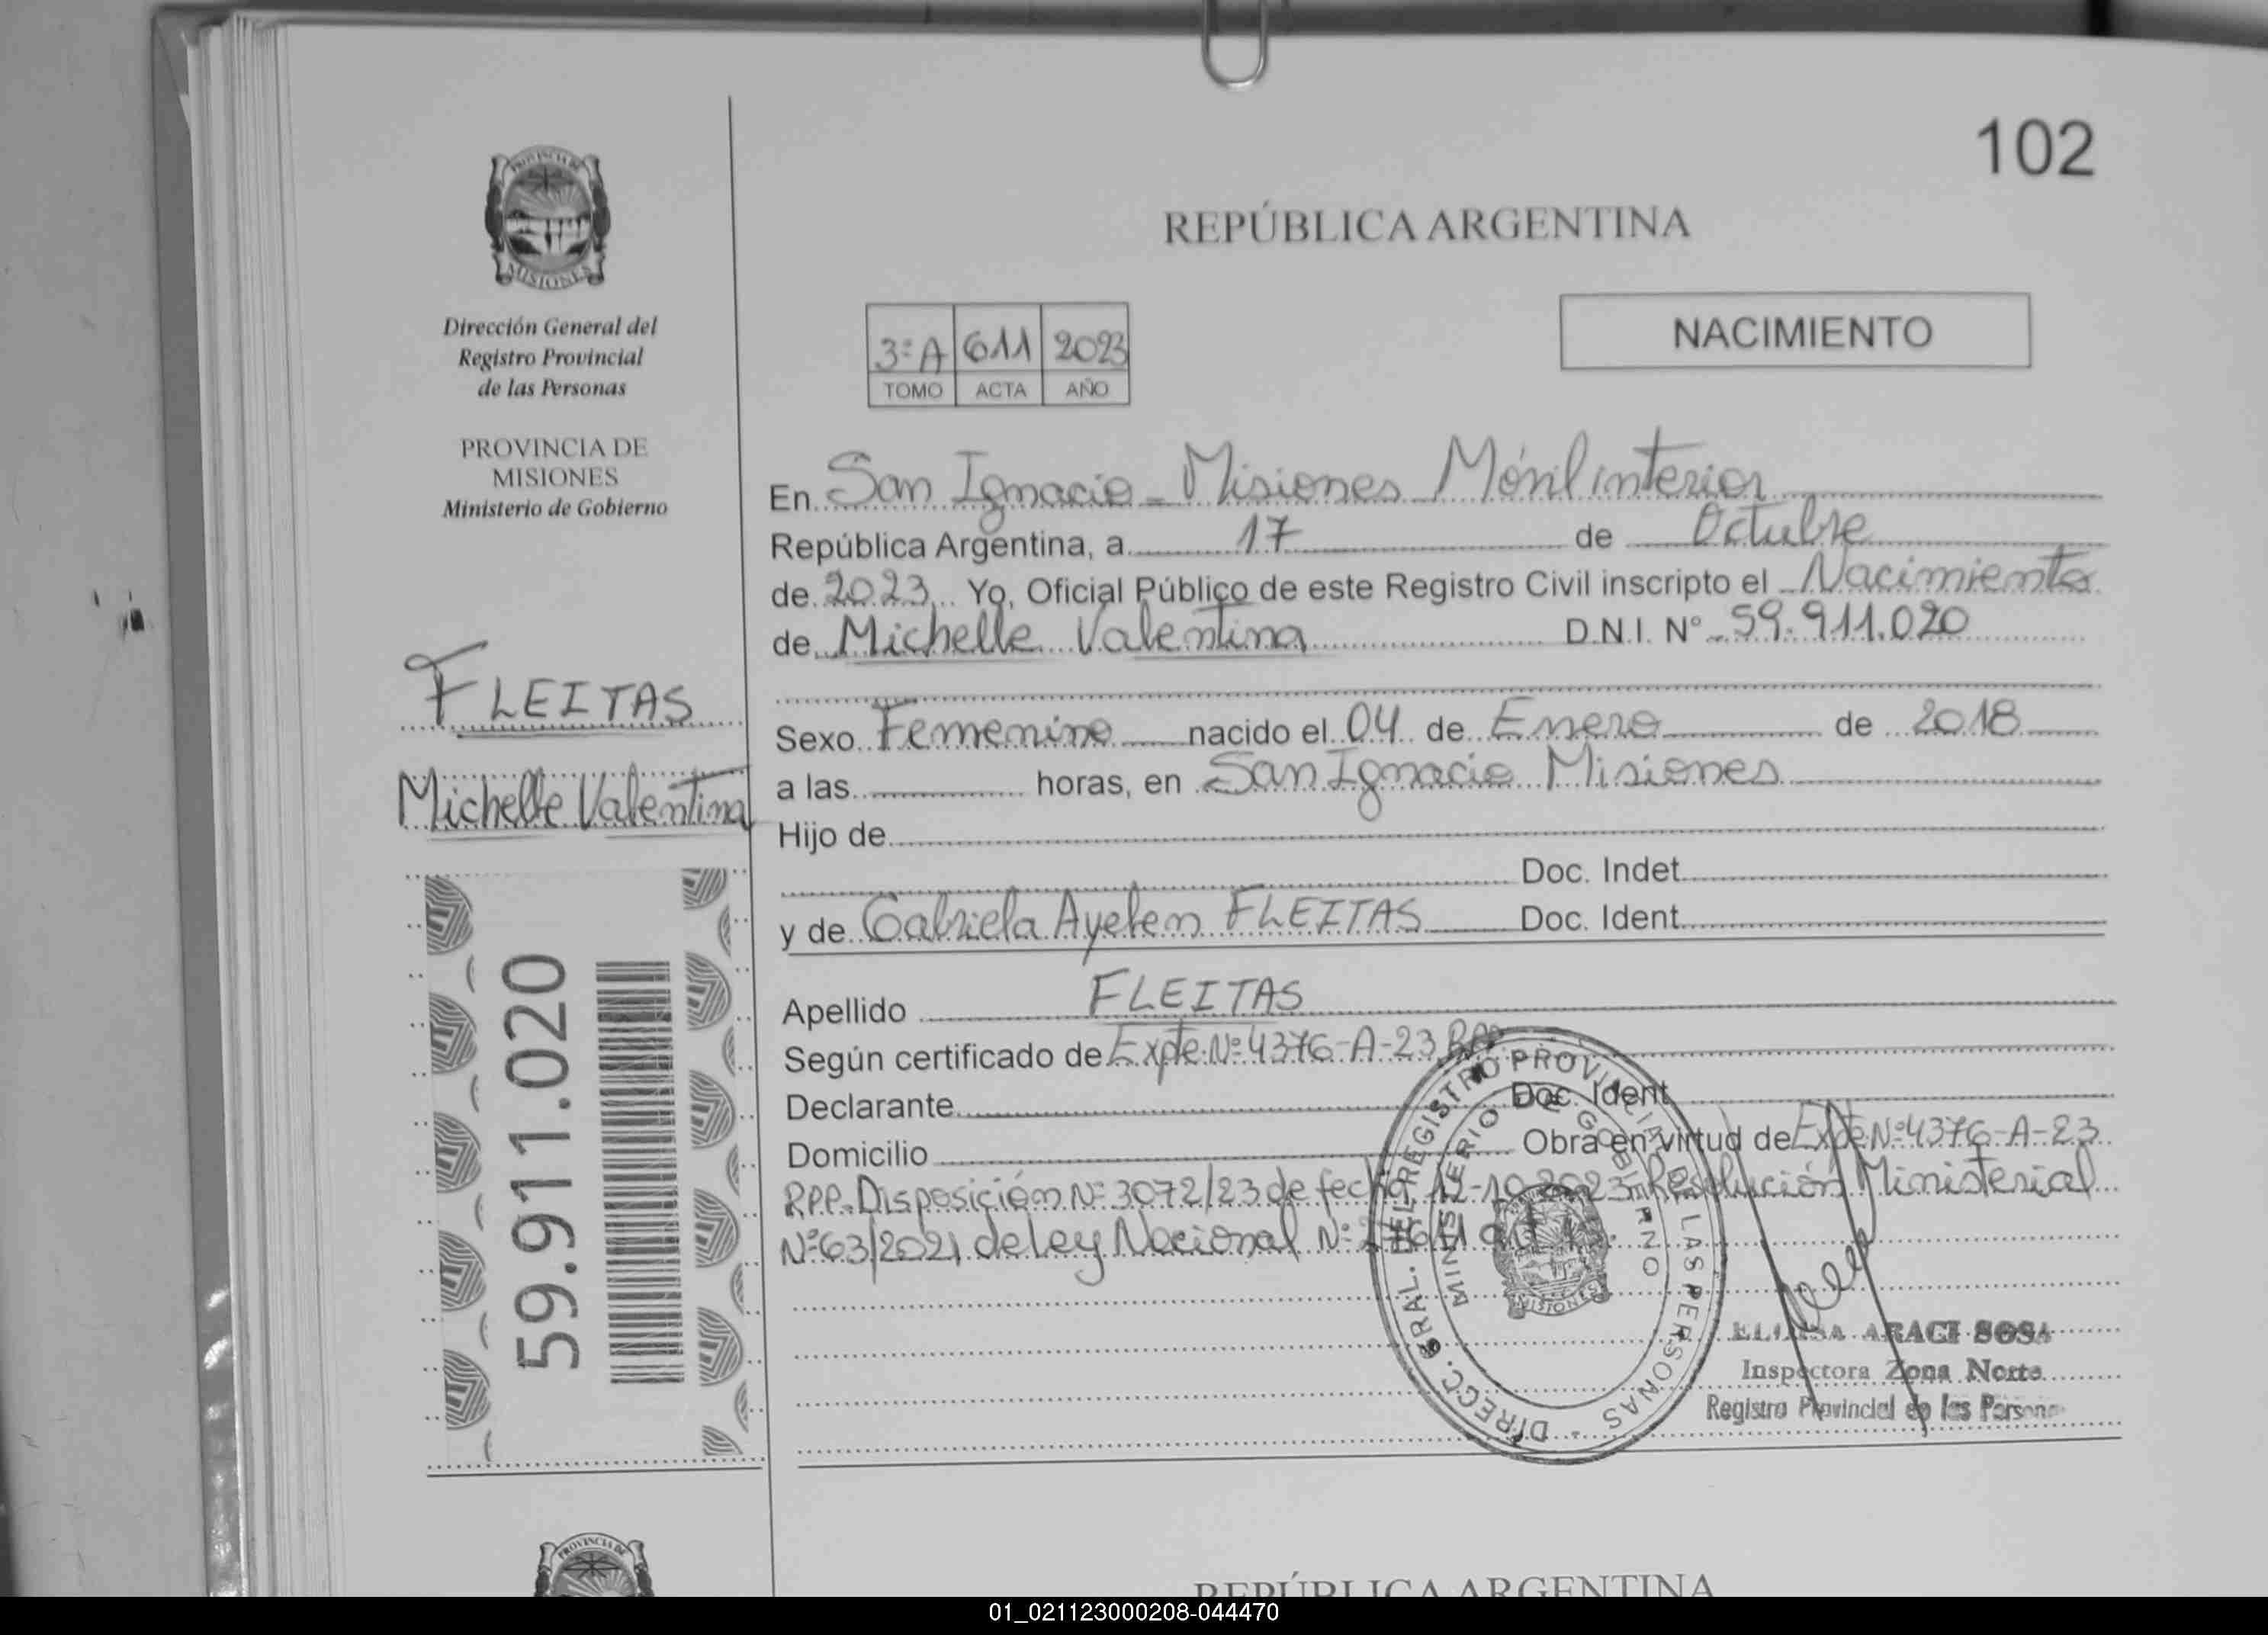 102
PROVINCIA DE
MISIONES
Dirección General del
Registro Provincial
de las Personas
PROVINCIA DE
MISIONES
Ministerio de Gobierno
FLEITAS
Michelle Valentina
59.911.020
REPÚBLICA ARGENTINA
3ºA 611 2023
TOMO ACTA AÑO
NACIMIENTO
En San Ignacio - Misiones Móvil interior
República Argentina, a 17 de Octubre
de 2023 Yo, Oficial Público de este Registro Civil inscripto el Nacimiento
de Michelle Valentina D.N.I. N° 59.911.020
Sexo Femenino nacido el 04 de Enero de 2018
a las horas, en San Ignacio Misiones
Hijo de
Doc. Indet
y de Gabriela Ayelen FLEITAS Doc. Ident
Apellido FLEITAS
Según certificado de Expte Nº 4376-A-23 RPP
Declarante Doc. Ident
Domicilio Obra en virtud de Expte Nº 4376-A-23
RPP. Disposición Nº 3072/23 de fecha 12-10-2023 Resolución Ministerial
Nº 63/2021 de Ley Nacional Nº
DIRECC. GRAL. DEL REGISTRO PROVINCIAL DE LAS PERSONAS -
MINISTERIO DE GOBIERNO
MISIONES
ARACI SOSA
Inspectora Zona Norte
Registro Provincial de las Personas
PROVINCIA DE
REPÚBLICA ARGENTINA
01_021123000208-044470